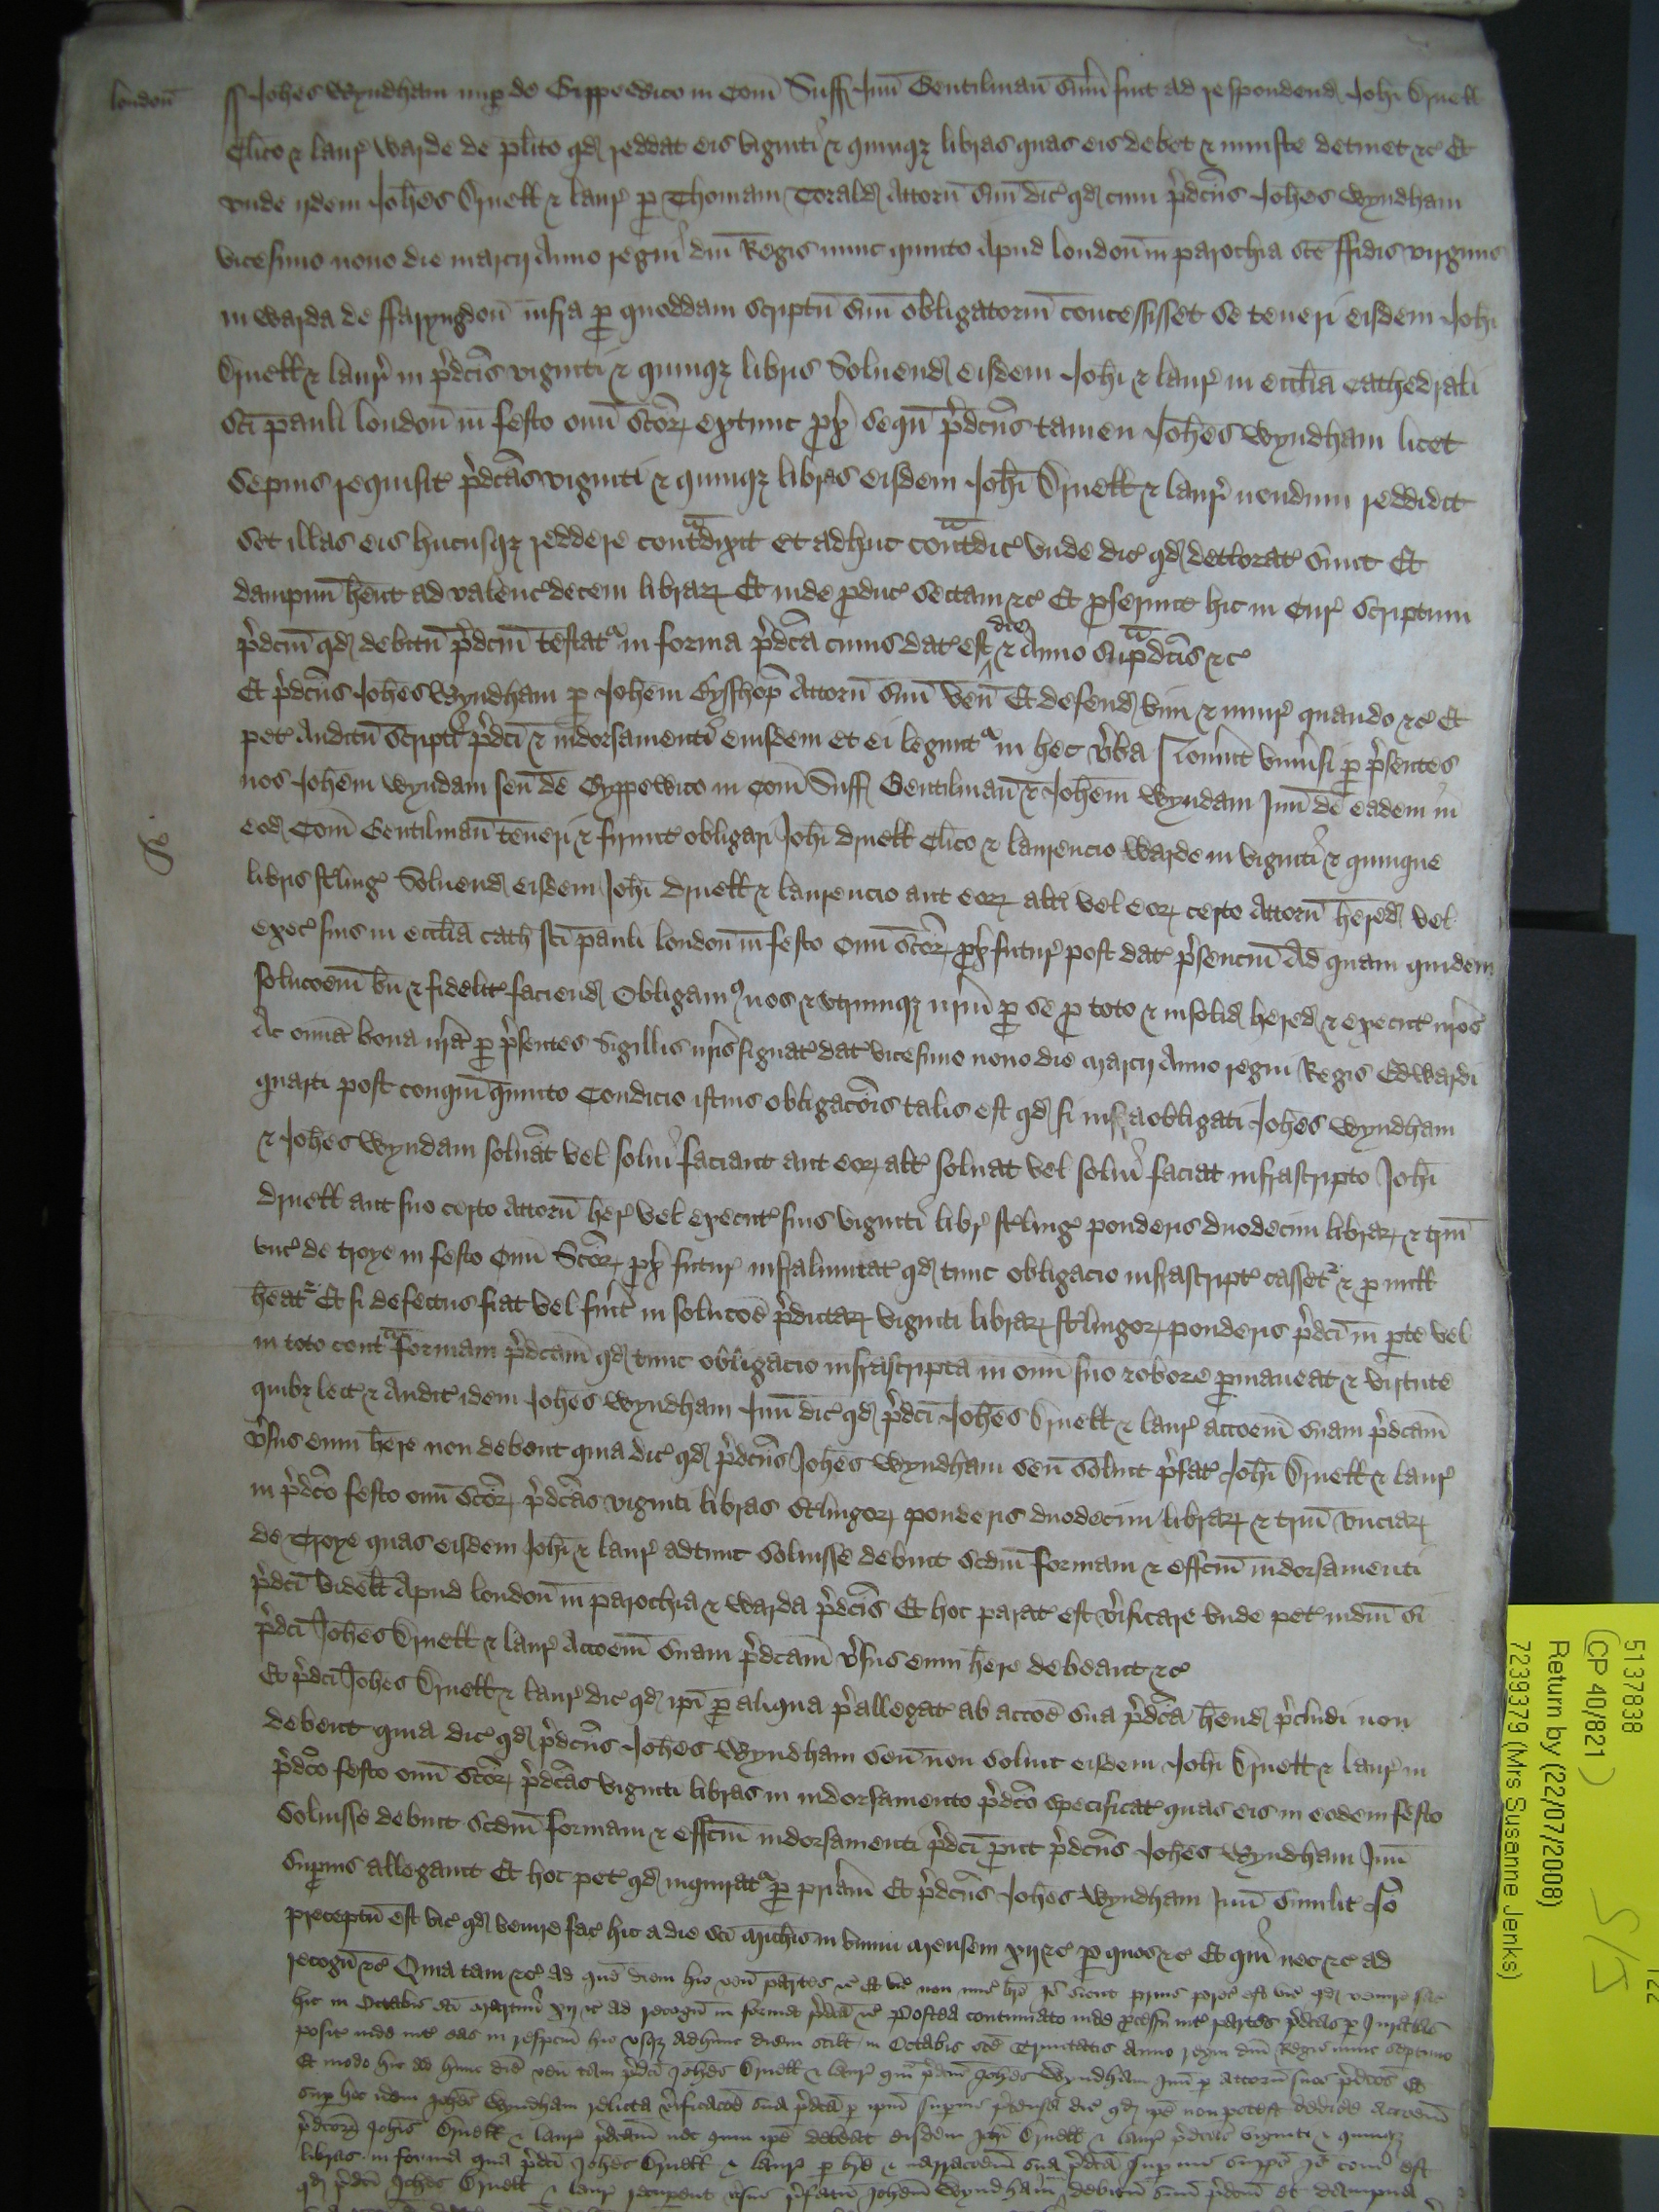 london ss Johes Wyndham nup de Gippewico in Com Suff Jun Gentilman sum fuit ad respondend Johi Druell
Clico & Laur Warde de plito qd reddat eis viginti & quinqz libras quas eis debet & iniuste detinet &c Et
vnde ijdem Johes Druell & Laur p Thomam Torald Attorn suu dic qd cum pdcus Johes Wyndham
vicesimo nono die marcij Anno regni dni Regis nunc quinto Apud london in parochia sce ffidis virginis
in warda de ffaryngdon infra p quoddam scriptu suu obligatoriu concessisset se teneri eisdem Johi
Druell & Laur in pdcis viginti & quinqz libris Soluend eisdem Johi & Laur in ecclia Cathedrali
sci pauli london in festo omi scor extunc px sequ pdcus tamen Johes Wyndham licet
sepius requisit pdcas viginti & quinqz libras eisdem Johi Druell & Laur nondum reddidit
set illas eis hucusqz reddere contadixit et adhuc contadic vnde dic qd detiorat sunt Et
dampnu hent ad valenc decem librar Et inde pduc sectam &c Et pferunt hic in Cur scriptum
pdcm qd debitu pdcm testat in forma pdca cuius dat est die & Anno supadcis &c
Et pdcus Johes Wyndham p Johem Bysshop Attorn suu ven Et defend vim & iniur quando &c Et
pet Auditu scripti pdci & indorsamenti eiusdem et ei legunt in hec vba Nouint vniusi p psentes
nos Johem Wyndam sen de Gyppewico in Com Suff Gentilman & Johem Wyndam Jun de eadem in
eod Com Gentilman teneri & firmit obligari Johi Druell Clico & Laurencio Warde in viginti & quinque
libris stling Soluend eisdem Johi Druell & Laurencio aut eor alti vel eor certo Attorn hered vel
exec suis in ecclia cath sci pauli london in festo omi scor px futur post dat psenciu Ad quam quidem
solucoem bn & fidelit faciend Obligam nos & vtrumqz nrm p se p toto & insolid hered & execut nros
Ac omia bona nra p psentes Sigillis nris signat dat vicesimo nono die marcij Anno regni Regis Edwardi
quarti post conqm quinto Condicio istius obligacois talis est qd si infraobligati Johes Wyndham
& Johes Wyndam soluat vel solui faciant aut eor alt soluat vel solui faciat infrascripto Johi
Druell aut suo certo Attorn her vel execut suis viginti libr stling ponderis duodecim librar & triu
vnc de troye in festo omi Scor px futur infralimitat qd tunc obligacio infrascript casset & p null
heat Et si defectus fiat vel fuit in solucoe pdictar viginti librar stlingor ponderis pdci in pte vel
in toto conta formam pdcam qd tunc obligacio infrascripta in omi suo robore pmaneat & virtute
quibz lect & Audit idem Johes Wyndham Jun dic qd pdci Johes Druell & Laur accoem suam pdcam
vsus eum here non debent quia dic qd pdcus Johes Wyndham sen soluit pfat Johi Druell & Laur
in pdco festo omi scor pdcas viginti libras stlingor ponderis duodecim librar & triu vnciar
de Troye quas eisdem Johi & Laur adtunc soluisse debuit scdm formam & effcm indorsamenti
pdci videlt Apud london in parochia & warda pdcis Et hoc parat est vificare vnde pet iudm si
pdci Johes Druell & Laur Accoem suam pdcam vsus eum here debeant &c
Et pdci Johes Druell & Laur dic qd ipi p aliqua pallegat ab accoe sua pdca hend pcludi non
debent quia dic qd pdcus Johes Wyndham sen non soluit eisdem Johi Druell & Laur in
pdco festo omi scor pdcas viginti libras in indorsamento pdco specificat quas eis in eodem festo
soluisse debuit scdm formam & effcm indorsamenti pdci put pdcus Johes Wyndham Jun
supius allegauit Et hoc pet qd inquirat p priam Et pdcus Johes Wyndham Jun similit Jo
preceptu est vic qd venire fac hic a die sci Michis in vnum mensem xij &c p quos &c Et qui nec &c ad
recogn &c Quia tam &c ad que diem hic ven partes &c Et vic non mis bre Jo sicut prius prec est vic qd venire fac
hic in Octabis sci Martini xij &c ad recogn in forma pdca &c Postea continuato inde pcessu int partes pdcas p Juratas
posit inde int eas in respcm hic vsqz adhunc diem scilt in Octabis sce Trinitatis Anno regni dni Regis nunc septimo
Et modo hic ad hunc die ven tam pdci Johes Druell & Laur qm pdcus Johes Wyndham Jun p attorn suos pdcos Et
sup hoc idem Johes Wyndham relicta vificacoe sua pdca p ipm supius ptensa dic qd ipe non potest dedicere Accoem
pdcor Johis Druell & Laur pdcam nec quin ipe debeat eisdem Johi Druell & Laur pdcas viginti & quinqz
libras in forma qua pdci Johes Druell & Laur p bre & narracoem sua pdca supius supp Jo cons est
qd pdci Johes Druell & Laur recupent vsus pfatu Johem Wyndham Jun debitu suu pdcm et dampna
5137838
(CP 40/821)
Return by (22/07/2008)
7239379 (Mrs Susanne Jenks)